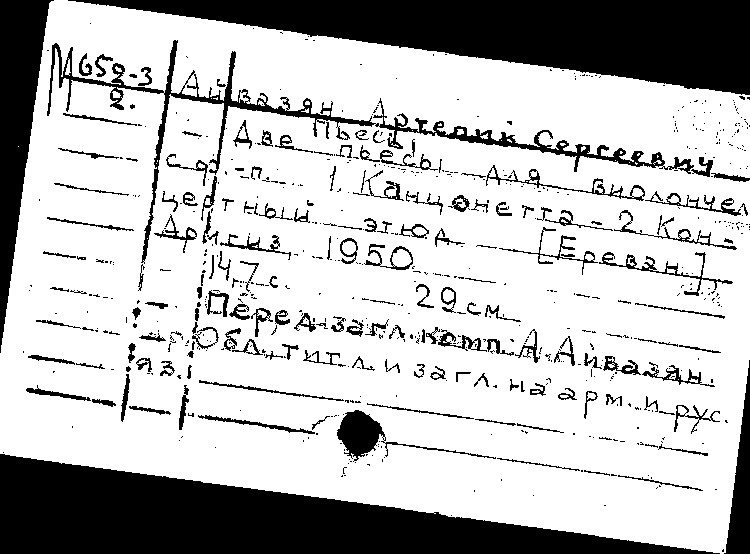 М 652-3
2.
Айвазян Артемик Сергеевич
Пьесы
Две пьесы для виолончел
с ф.-п. 1. Канцонетта - 2. Кон-
цертный этюд [Ереван],
Армгиз, 1950
14,7 с. 29 см.
Перед загл. комп: А. Айвазян.
Обл., тит. л. и загл. на арм. и рус.
яз.